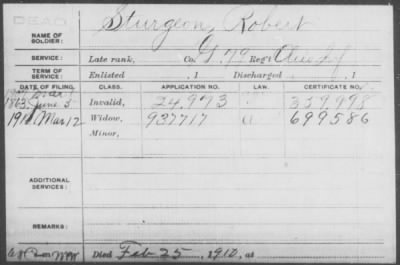 DEAD
NAME OF SOLDIER: Sturgeon, Robert
SERVICE: Late rank, Co. G, 79 Reg't
TERM OF SERVICE: Enlisted , 1 Discharged , 1
DATE OF FILING. CLASS. APPLICATION NO. LAW. CERTIFICATE NO.
1863 June 5 Invalid, 24,993 359,998
1910 Mar 12 Widow, 937717 699586
Minor,
ADDITIONAL SERVICES:
REMARKS:
Died Feb 25, 1910, at